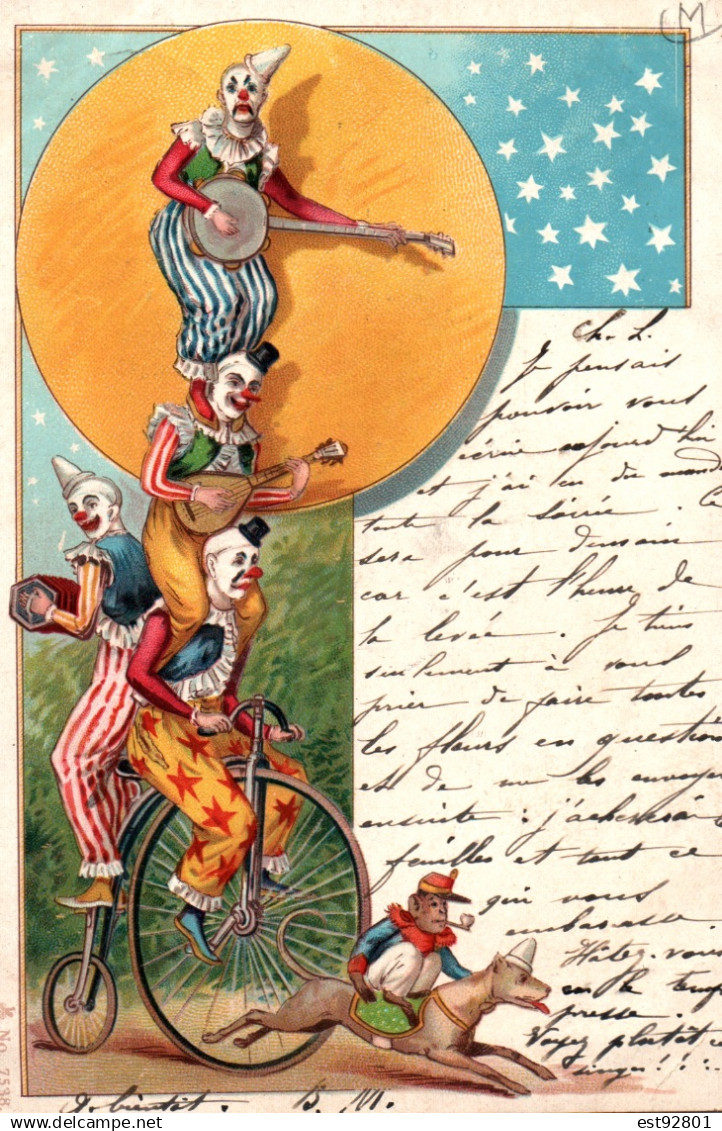 M
Ch. L.
Je pensais
pouvoir vous
écrire aujourd'hui
et j'ai eu du monde
toute la soirée. Ce
sera pour demain
car c'est l'heure de
la levée. Je tiens
seulement à vous
prier de faire toutes
les fleurs en question
et de me les envoyer
ensuite : j'achèterai
feuilles et tout ce
qui vous
embarasse.
Hâtez-vous
car le temps
presse.
Voyez plutôt ce
singe!!!
A bientôt. B. M.
No. 7538.
est92801